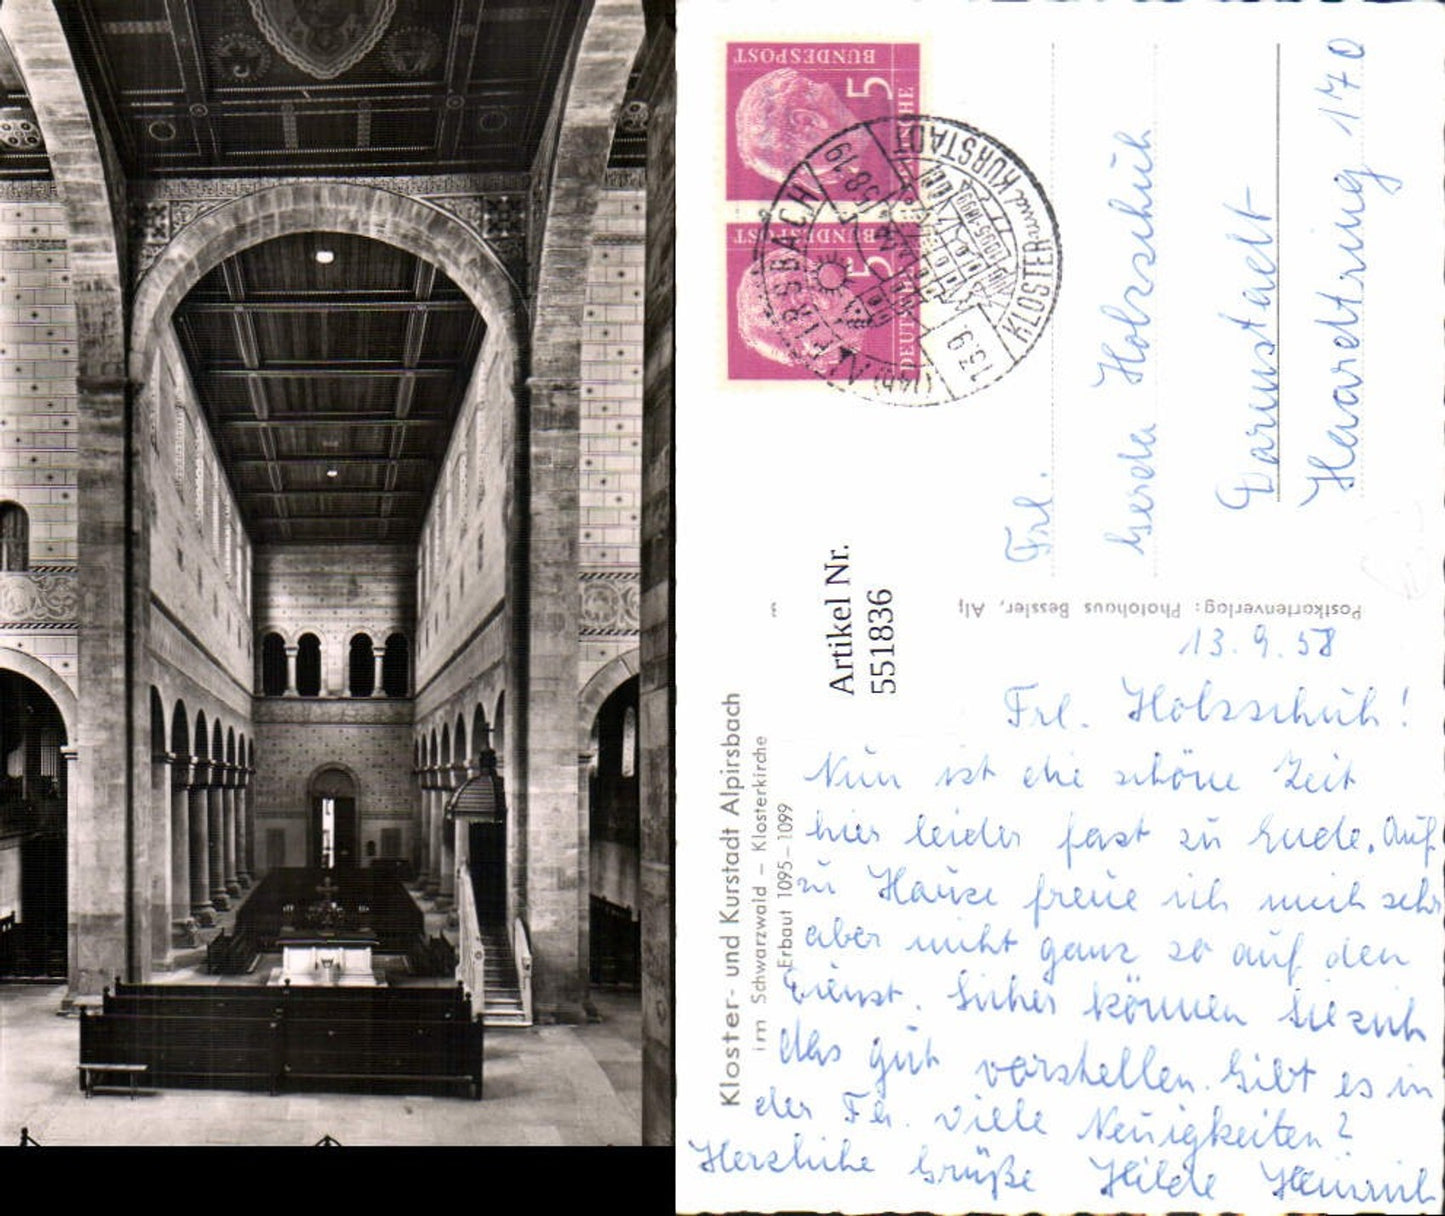 BUNDESPOST
5
DEUTSCHE
BUNDESPOST
5
DEUTSCHE
ALPIRSBACH
KLOSTER und KURSTADT
13.9.
58.19
1095-1099
Frl.
Gerda Holzschuh
Darmstadt
Haardtring 170
Artikel Nr.
551836
Postkartenverlag: Photohaus Bessler, Alp
Kloster- und Kurstadt Alpirsbach
im Schwarzwald – Klosterkirche
Erbaut 1095–1099
13.9.58
Frl. Holzschuh!
Nun ist die schöne Zeit
hier leider fast zu Ende. Auf
zu Hause freue ich mich sehr
aber nicht ganz so auf den
Dienst. Sicher können Sie sich
das gut vorstellen. Gibt es in
der Fa. viele Neuigkeiten?
Herzliche Grüße Hilde Heinrich